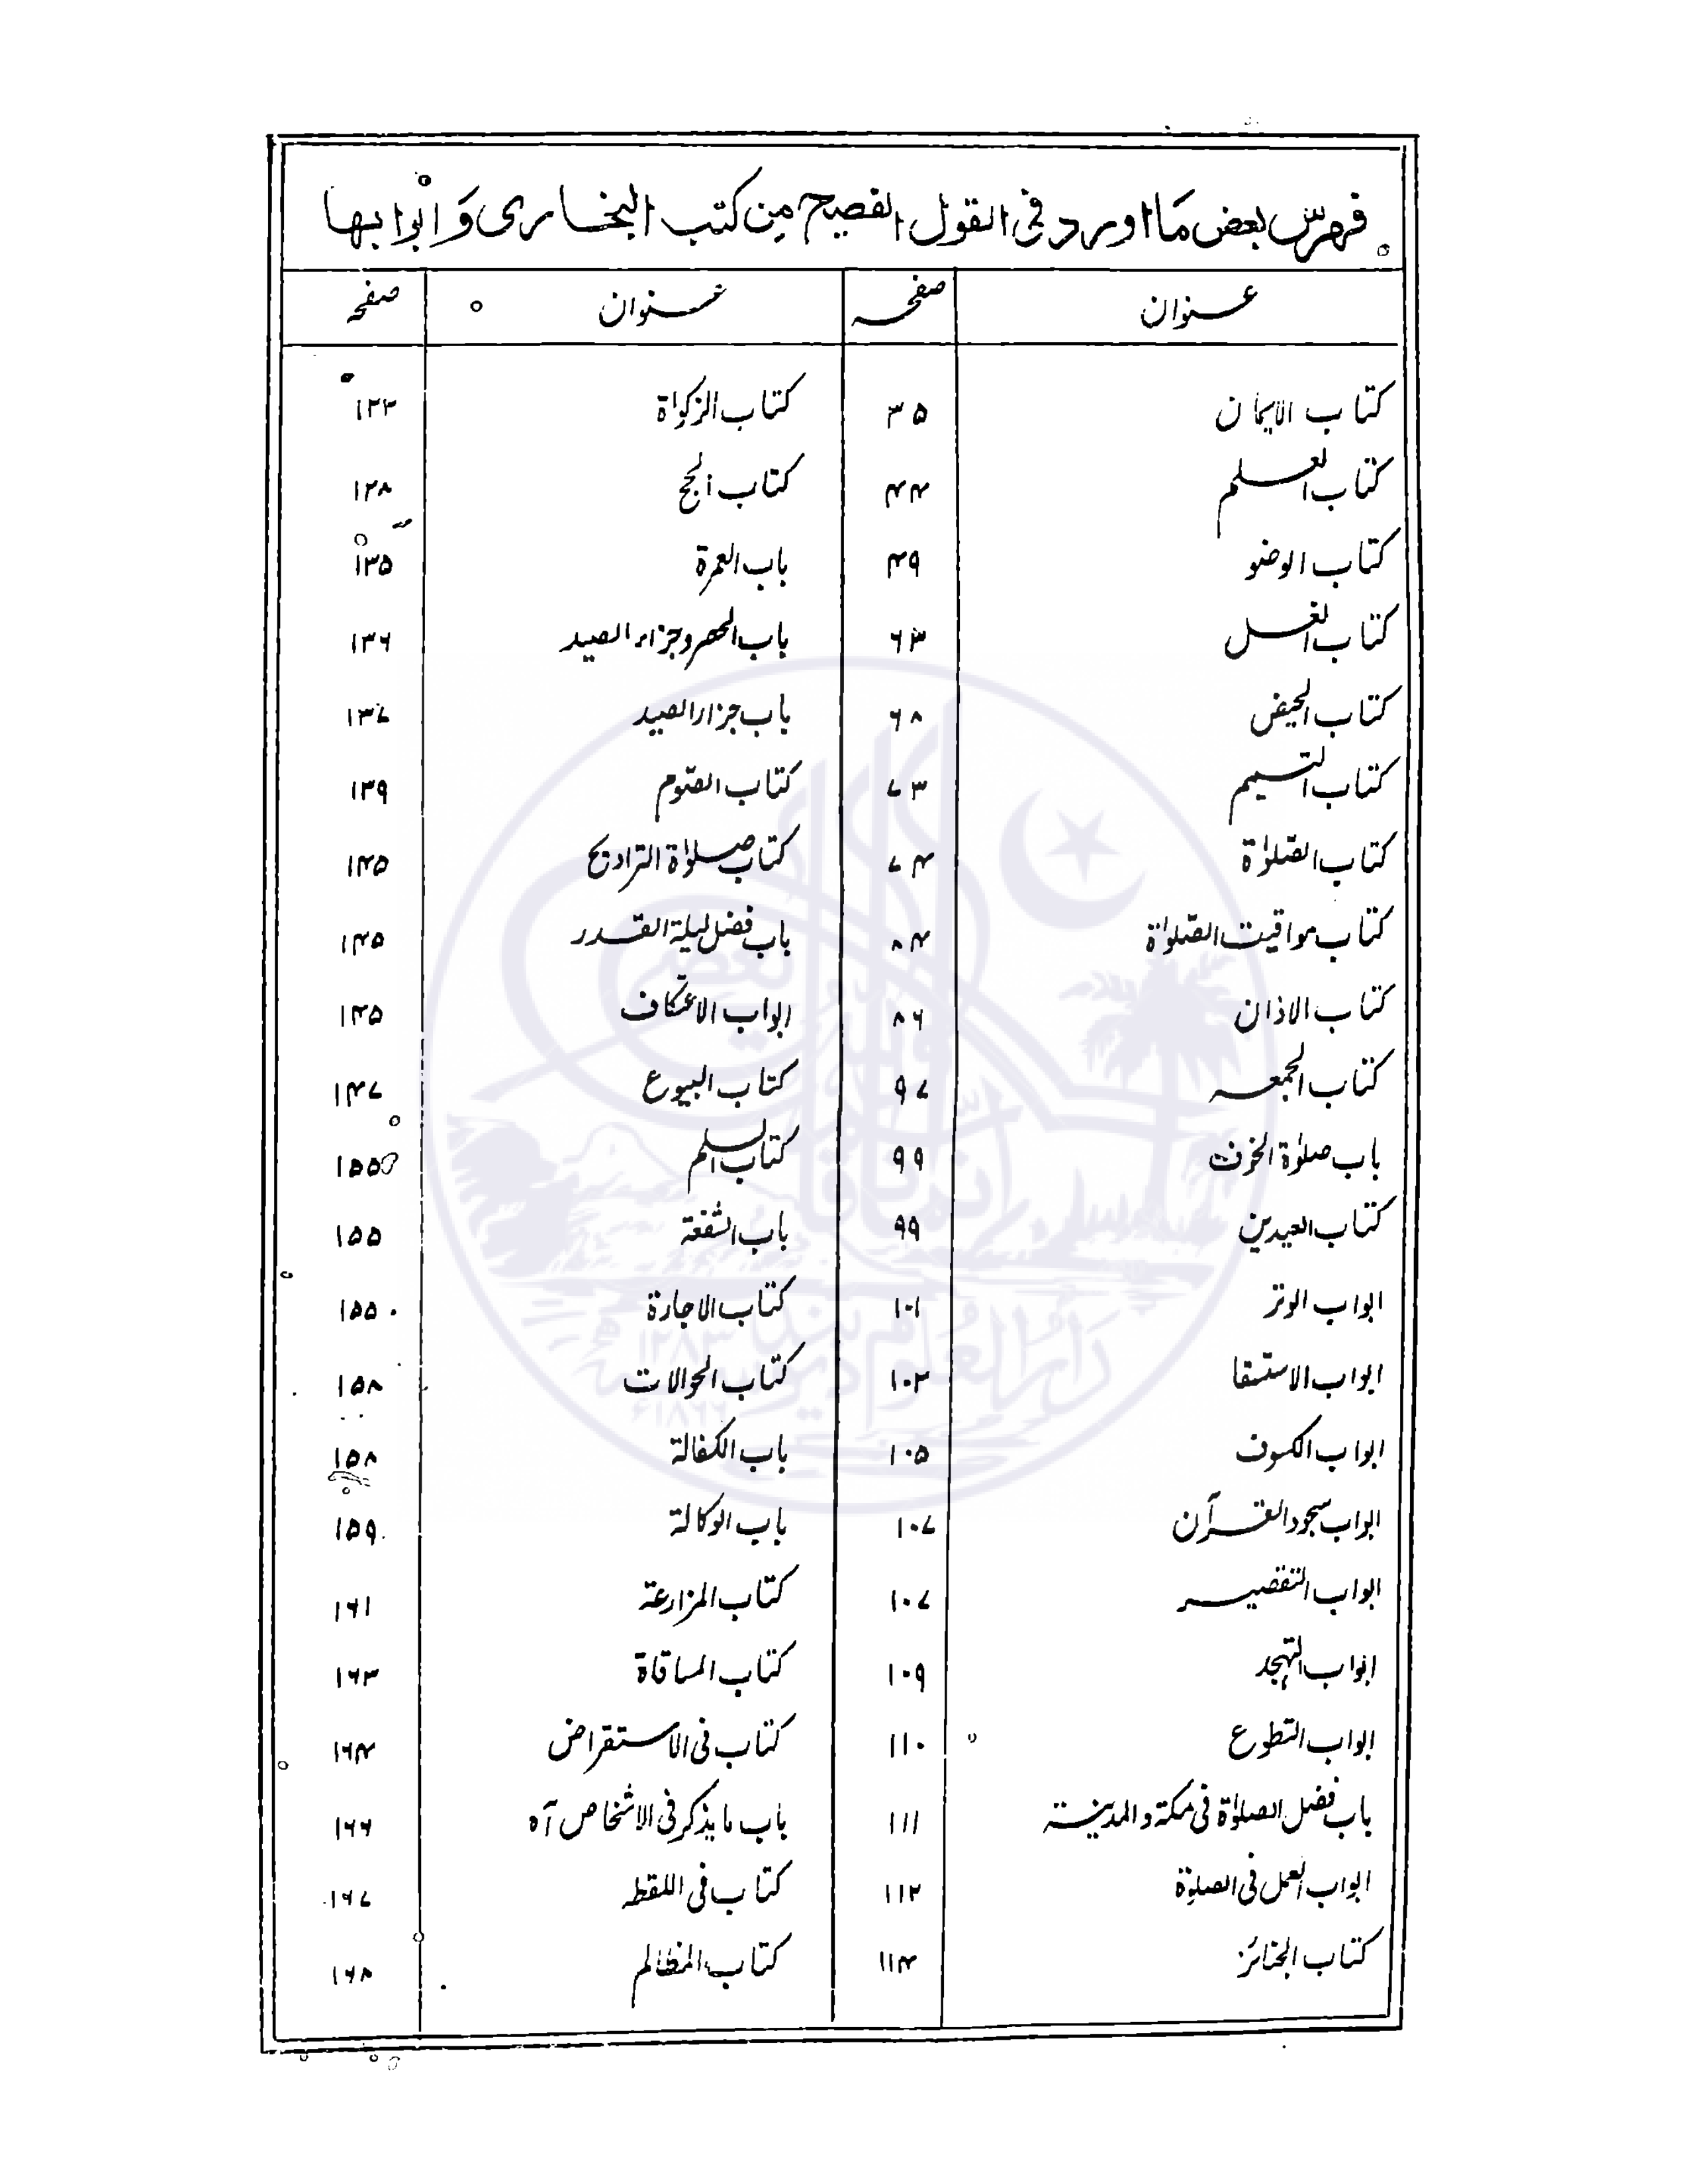 فهرس بعض ما اورد فی القول الفصیح من کتب البخاری و ابوابها
عنوان صفحہ عنوان صفحہ
کتاب الایمان ۳۵ کتاب الزکوٰة ۱۲۳
کتاب العلم ۴۴ کتاب الحج ۱۲۸
کتاب الوضو ۴۹ باب العمرة ۱۳۵
کتاب الغسل ۶۳ باب المحصر وجزاء الصید ۱۳۶
کتاب الحیض ۶۸ باب جزاء الصید ۱۳۷
کتاب التیمم ۷۳ کتاب الصّوم ۱۳۹
کتاب الصّلوٰة ۷۴ کتاب صلوٰة التراویح ۱۴۵
کتاب مواقیت الصّلوٰة ۸۴ باب فضل لیلة القدر ۱۴۵
کتاب الاذان ۸۶ ابواب الاعتکاف ۱۴۵
کتاب الجمعہ ۹۷ کتاب البیوع ۱۴۷
باب صلوٰة الخوف ۹۹ کتاب السلم ۱۵۵
کتاب العیدین ۹۹ باب الشفعة ۱۵۵
ابواب الوتر ۱۰۱ کتاب الاجارة ۱۵۵
ابواب الاستسقا ۱۰۳ کتاب الحوالات ۱۵۸
ابواب الکسوف ۱۰۵ باب الکفالة ۱۵۸
ابواب سجود القرآن ۱۰۷ باب الوکالة ۱۵۹
ابواب التقصیر ۱۰۷ کتاب المزارعة ۱۶۱
ابواب التہجد ۱۰۹ کتاب المساقاة ۱۶۳
ابواب التطوع ۱۱۰ کتاب فی الاستقراض ۱۶۴
باب فضل الصلوٰة فی مکة والمدینة ۱۱۱ باب ما یذکر فی الاشخاص آہ ۱۶۶
ابواب العمل فی الصلوٰة ۱۱۲ کتاب فی اللقطہ ۱۶۷
کتاب الجنائز ۱۱۴ کتاب المظالم ۱۶۸
دار العلوم دیوبند
۱۲۸۳ھ
۱۸۶۶ء